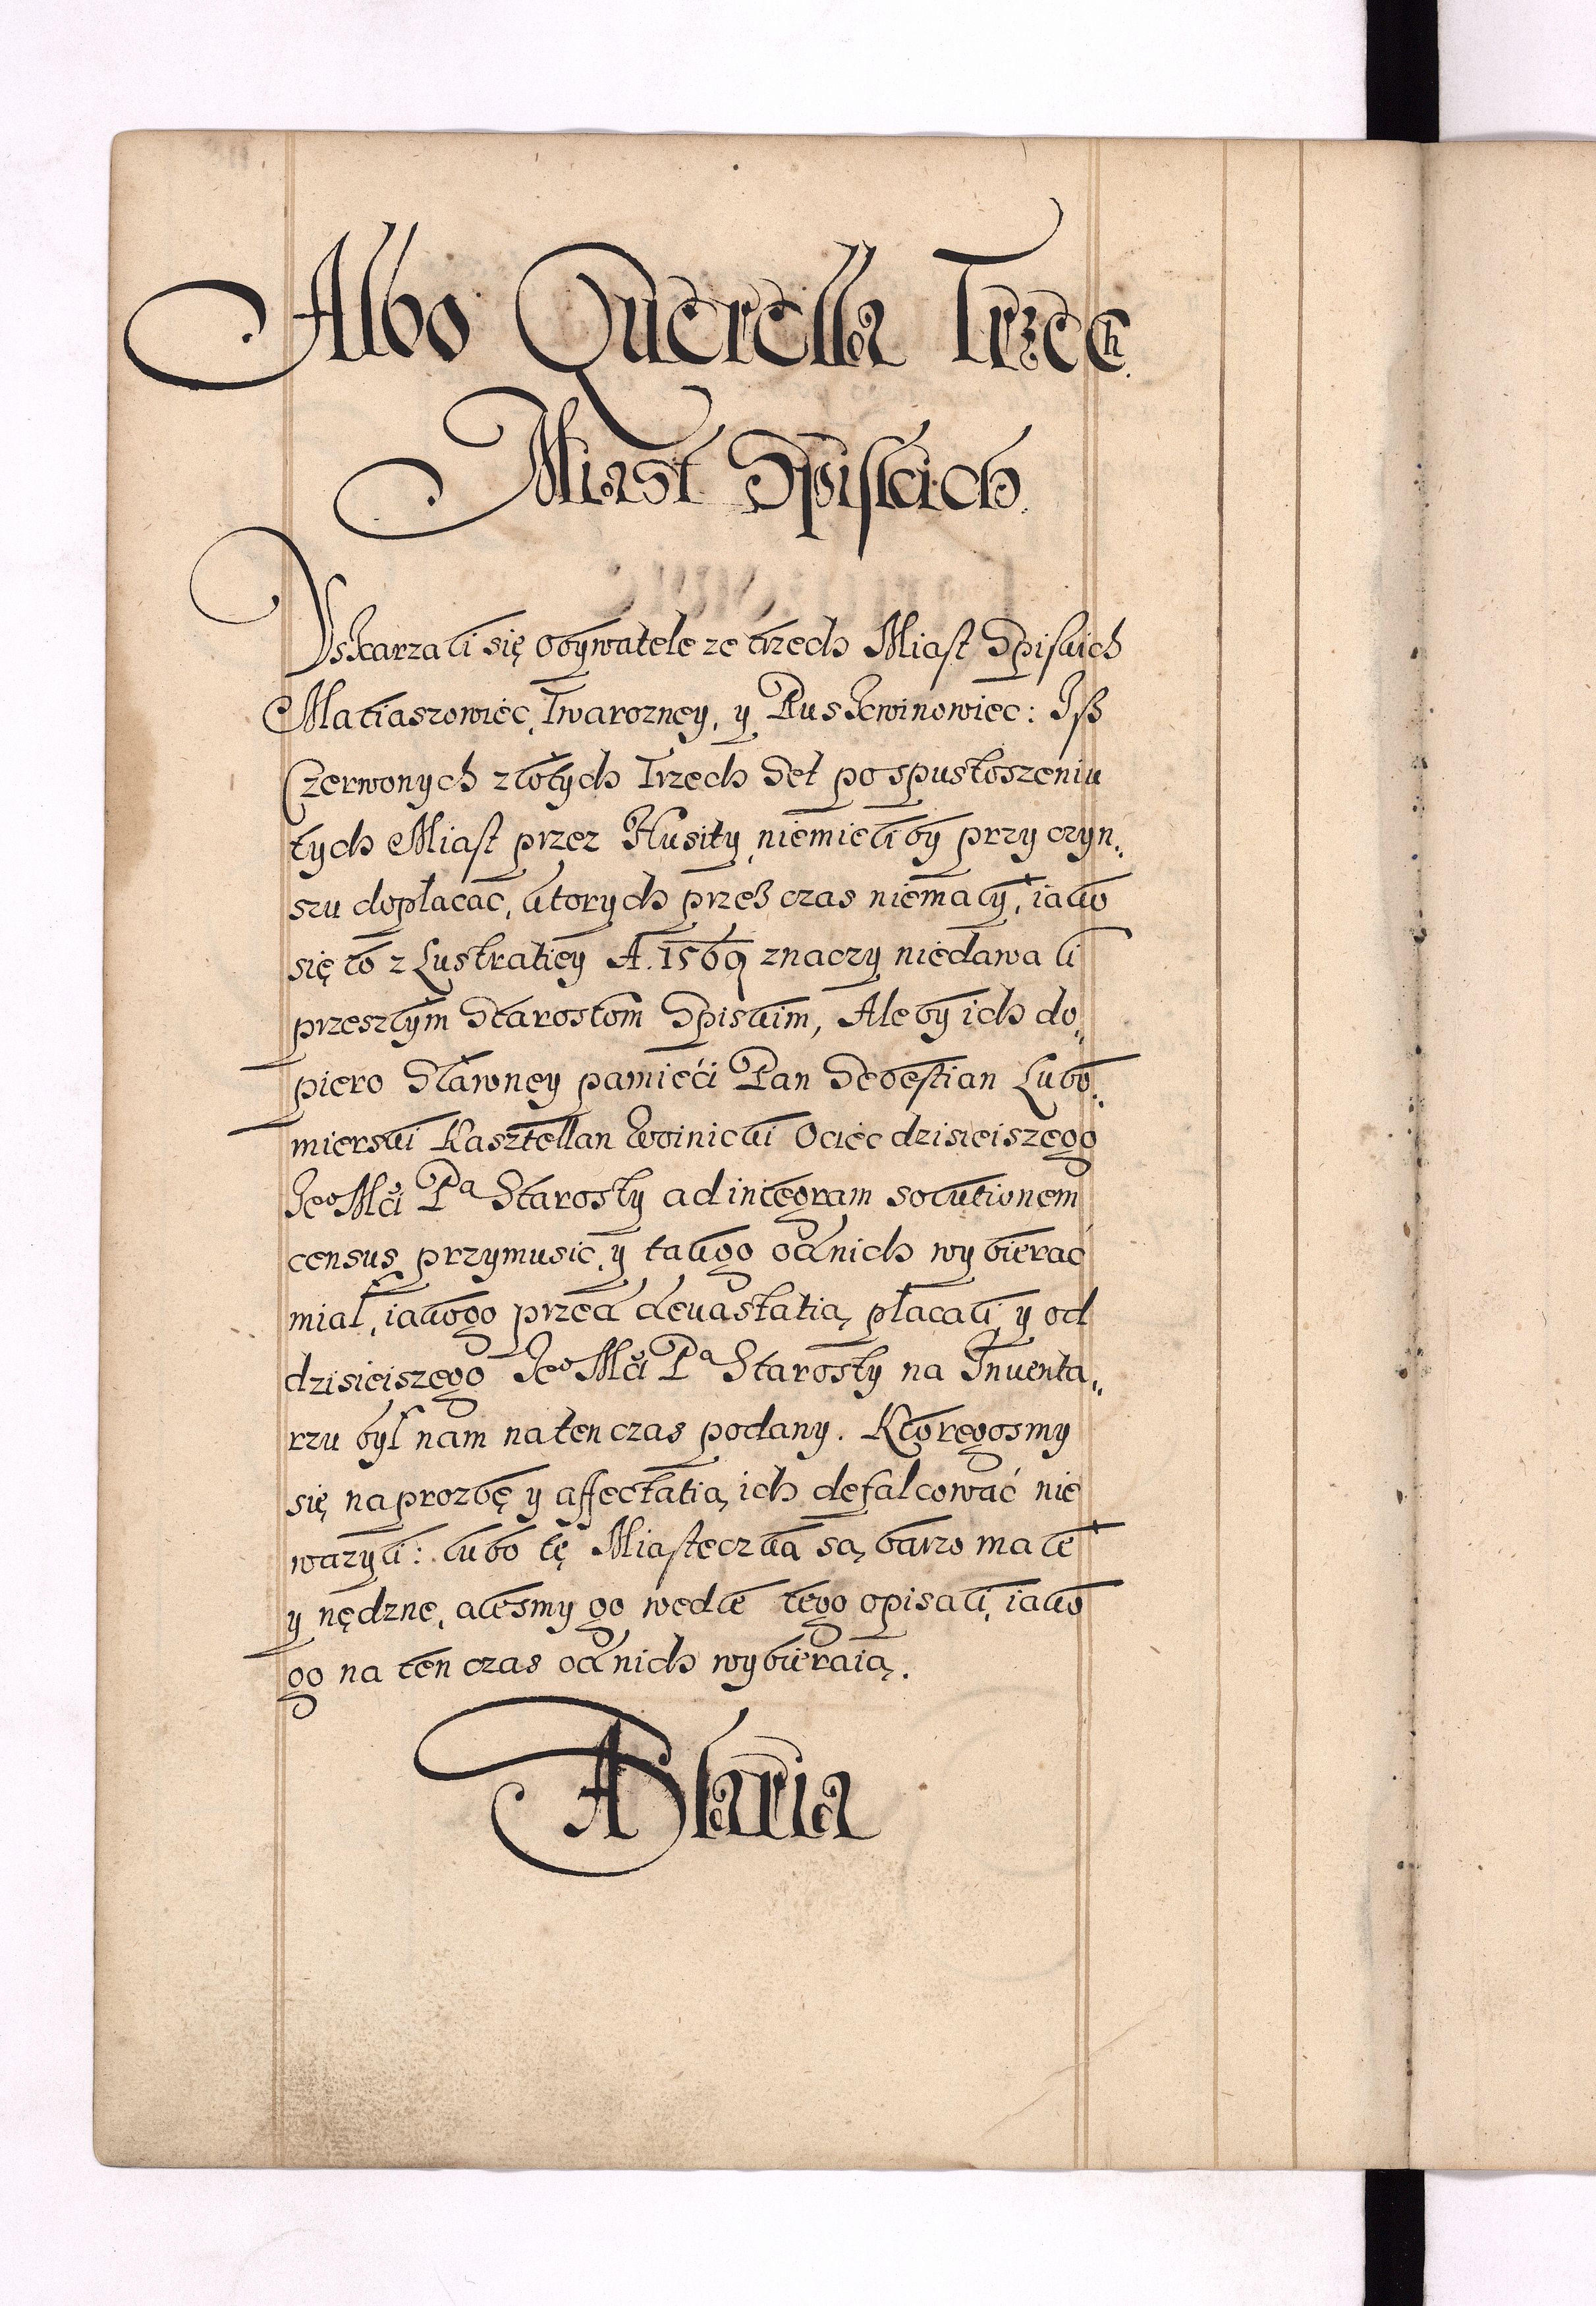 Albo Querella Trzech
Miast Spiskich
Uskarzali się obywatele ze trzech Miast Spiskich
Matiaszowiec, Twarozney, y Ruskwinowiec: Iß
Czerwonych złotych Trzech Set po spustoszeniu
tych Miast przez Husity, niemieliby przy czyn„
szu dopłacac, ktorych przeß czas niemały, iako
się to z Lustratiey A. 1569 znaczy niedawali
przeszłym Starostom Spiskim, Aleby ich do„
piero Sławney pamięći Pan Sebestian Lubo„
mierski Kasztellan Woinicki Ociec dzisieiszego
Jeo Mći Pa Starosty ad integram solutionem
census przymusic, y takogo od nich wybierać
miał, iakogo przed devastatią płacali, y od
dzisieiszego Jeo Mći Pa Starosty na Inventa„
rzu był nam na ten czas podany. Ktoregosmy
się na prozbę y affectatią ich defalcować nie
wazyli: lubo tę Miasteczka są barzo małe
y nędzne, alesmy go wedle tego opisali, iako
go na ten czas od nich wybieraią.
Ablaria